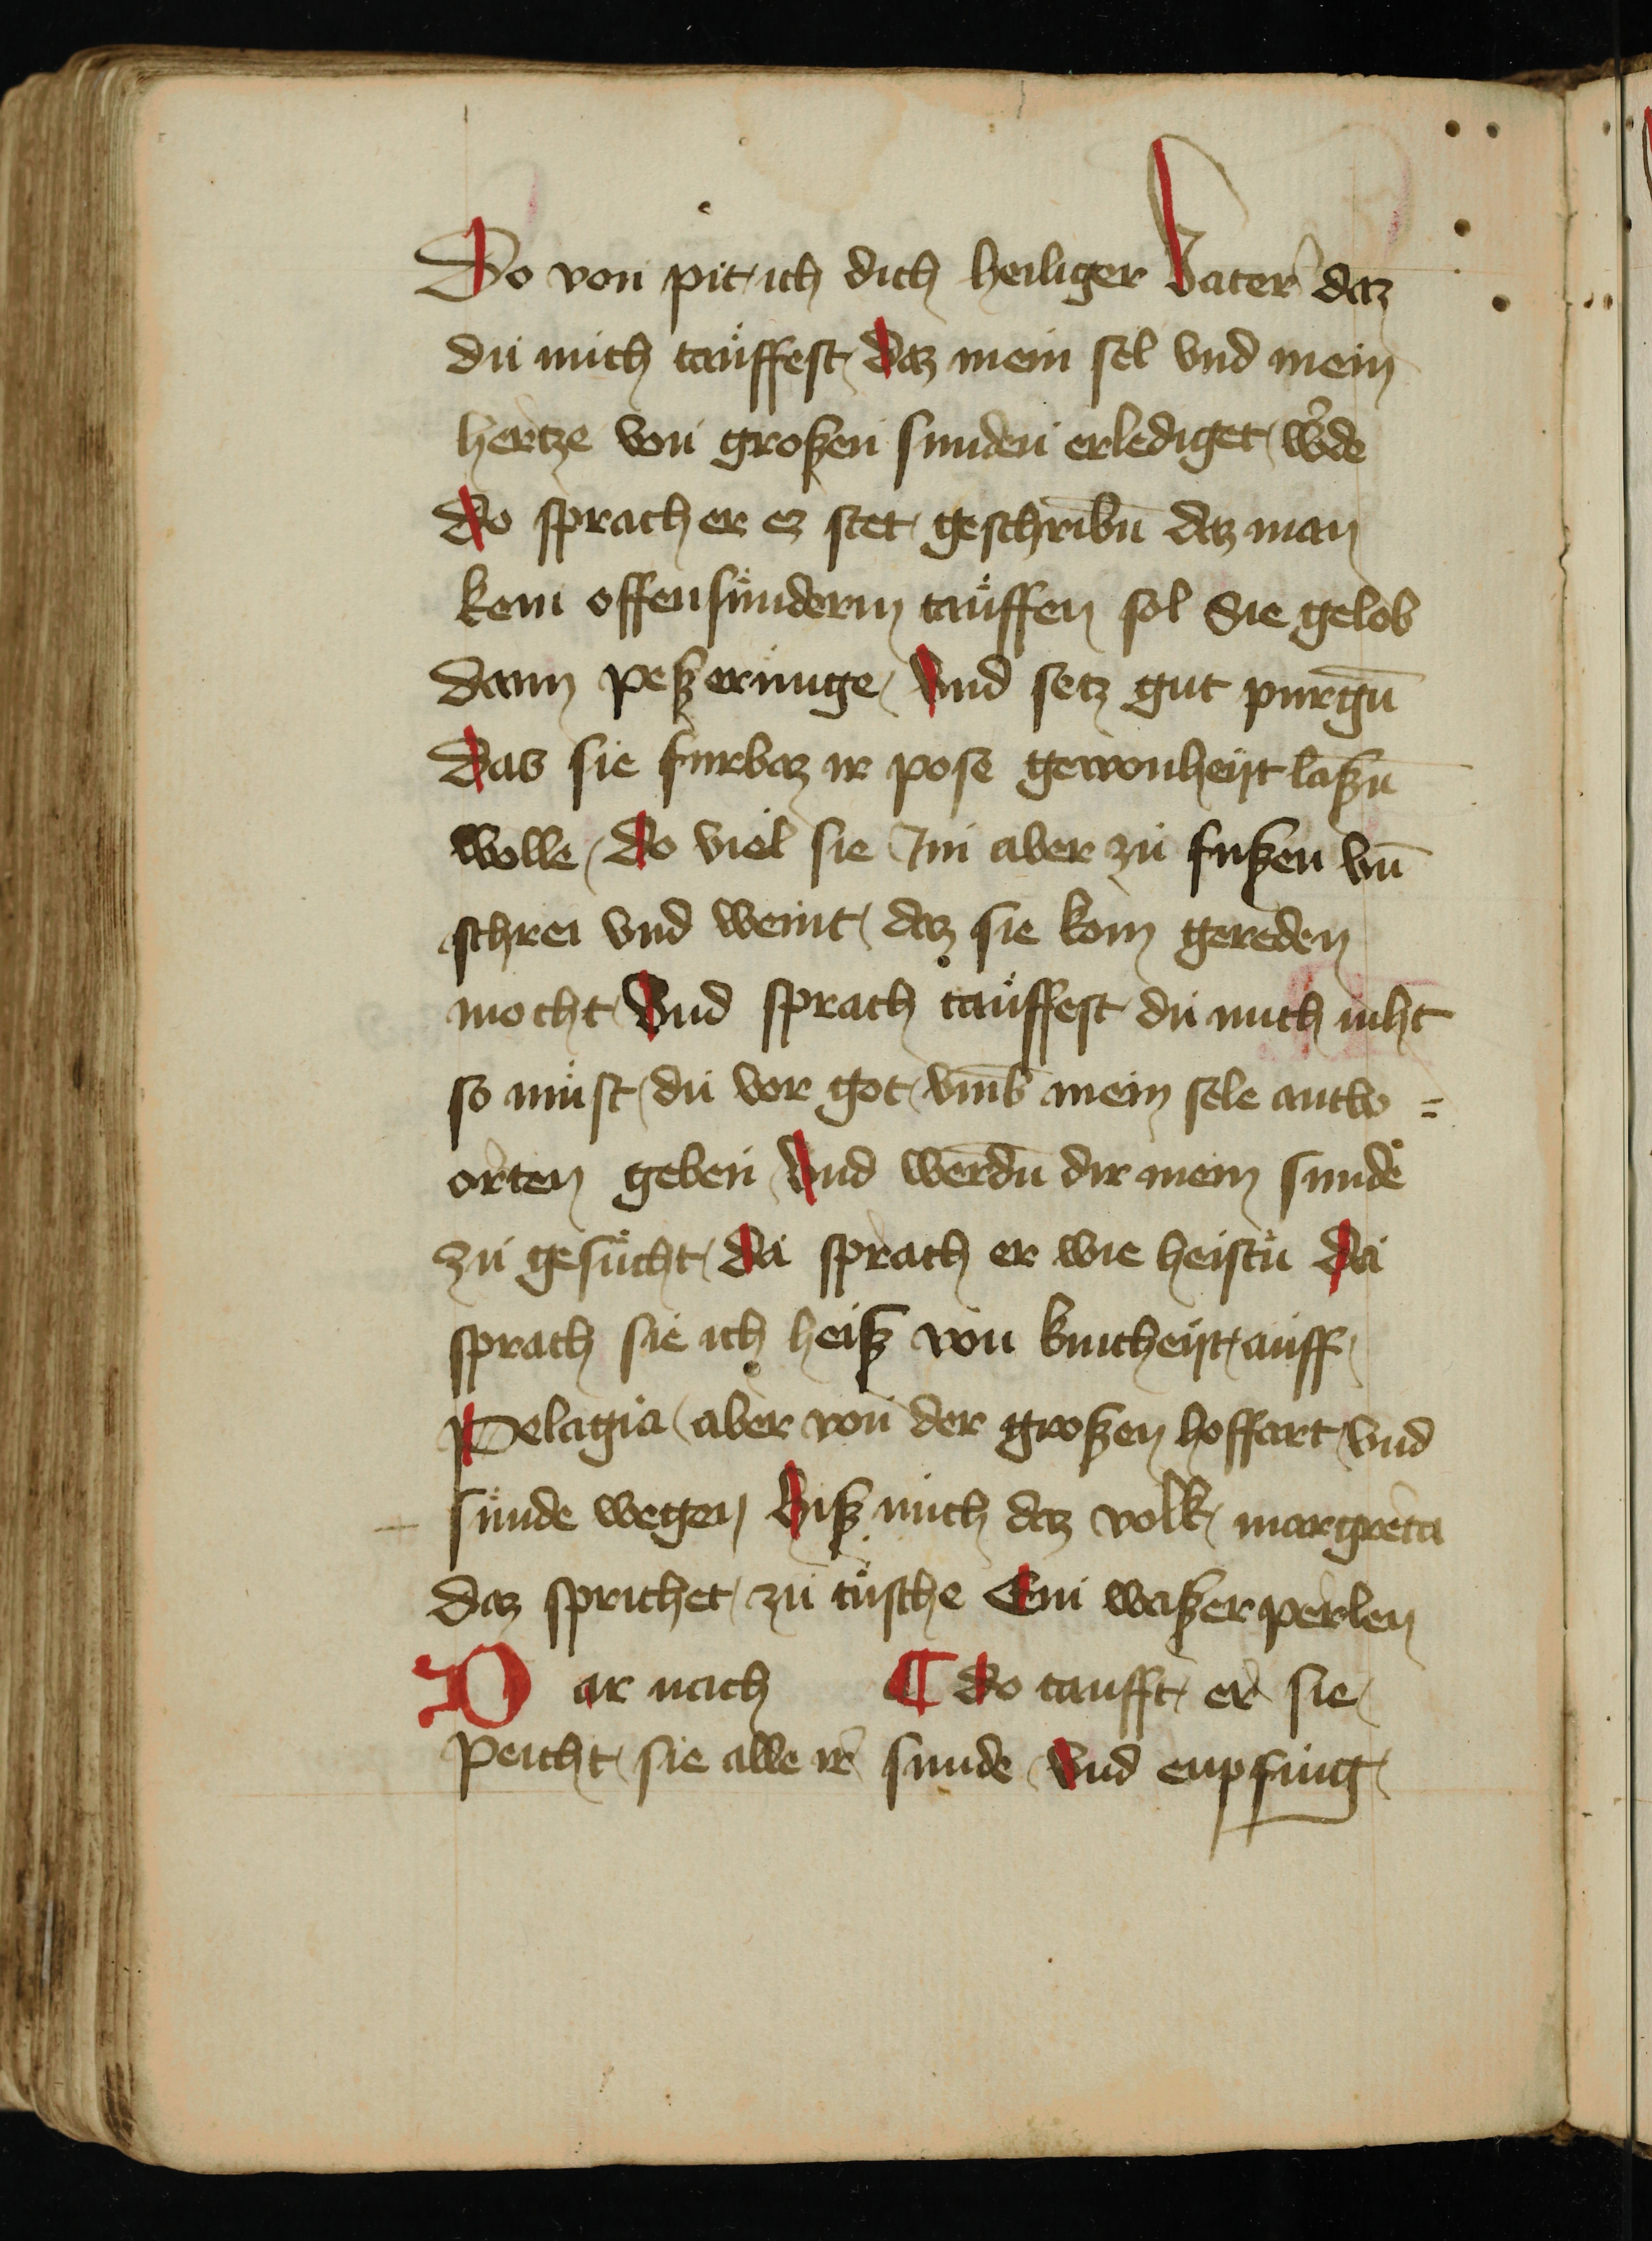 Do von pit ich dich heiliger Vater daz
du mich tauffest daz mein sel vnd mein
hertze von großen sunden erlediget w'de
do sprach er ez stet geschribn̄ daz man
kein offen sünderin tauffen sol Sie gelob
dann peßerunge Vnd setz gut purgn̄
Das sie furbaz ir pose gewonheyt laßn̄
wolle Do viel sie Im aber zu fußen vn̄
schrei vnd weint daz sie kom gereden
mocht Vnd sprach tauffest du mich niht
so must du vor got vm̄b mein sele antw=
orten geben Vnd werdn̄ dir mein sunde
zu gesücht da sprach er wie heistu da
sprach sie ich heiß von kintheyt auff
Pelagia aber von der großen hoffart vnd
sünde wegen hiß mich daz volk margreta
daz sprichet zu tüsche Ein waßer perlen
Dar nach ¶ do taufft er sie
peicht sie alle ir sunde Vnd enpfing